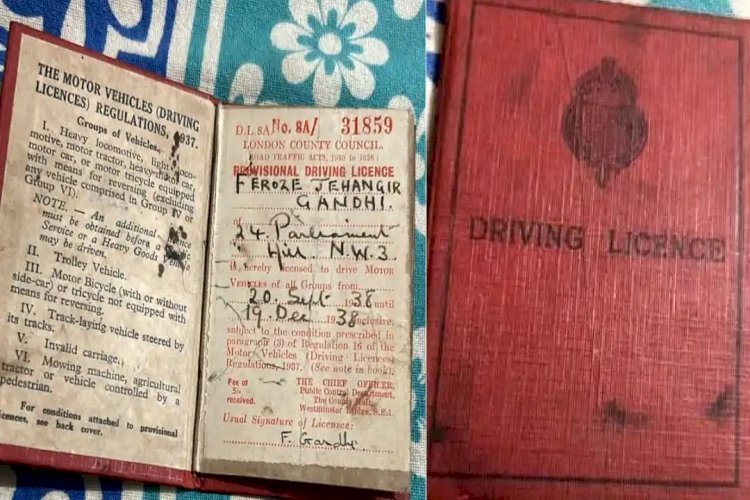 THE MOTOR VEHICLES (DRIVING
LICENCES) REGULATIONS, 1937.
Groups of Vehicles.
I. Heavy locomotive, light loco-
motive, motor tractor, heavy motor car,
motor car, or motor tricycle equipped
with means for reversing (excluding
any vehicle comprised in Group IV or
Group VI).
NOTE. — An additional licence
must be obtained before a
Service or a Heavy Goods Vehicle
may be driven.
II. Trolley Vehicle.
III. Motor Bicycle (with or without
side-car) or tricycle not equipped with
means for reversing.
IV. Track-laying vehicle steered by
its tracks.
V. Invalid carriage.
VI. Mowing machine, agricultural
tractor or vehicle controlled by a
pedestrian.
For conditions attached to provisional
licences, see back cover.
D.L.8A No. 8A/ 31859
LONDON COUNTY COUNCIL.
ROAD TRAFFIC ACTS, 1930 to 1936:
PROVISIONAL DRIVING LICENCE
FEROZE JEHANGIR
GANDHI.
of
24 Parliament
Hill. N.W.3.
is hereby licensed to drive MOTOR
VEHICLES of all Groups from
20. Sept 1938 until
19 Dec 1938 inclusive,
subject to the condition prescribed in
paragraph (3) of Regulation 16 of the
Motor Vehicles (Driving Licences)
Regulations, 1937. (See note in book).
Fee of
5/-
received.
THE CHIEF OFFICER,
Public Control Department,
The County Hall,
Westminster Bridge, S.E.1.
Usual Signature of Licensee:
F. Gandhi
DRIVING LICENCE